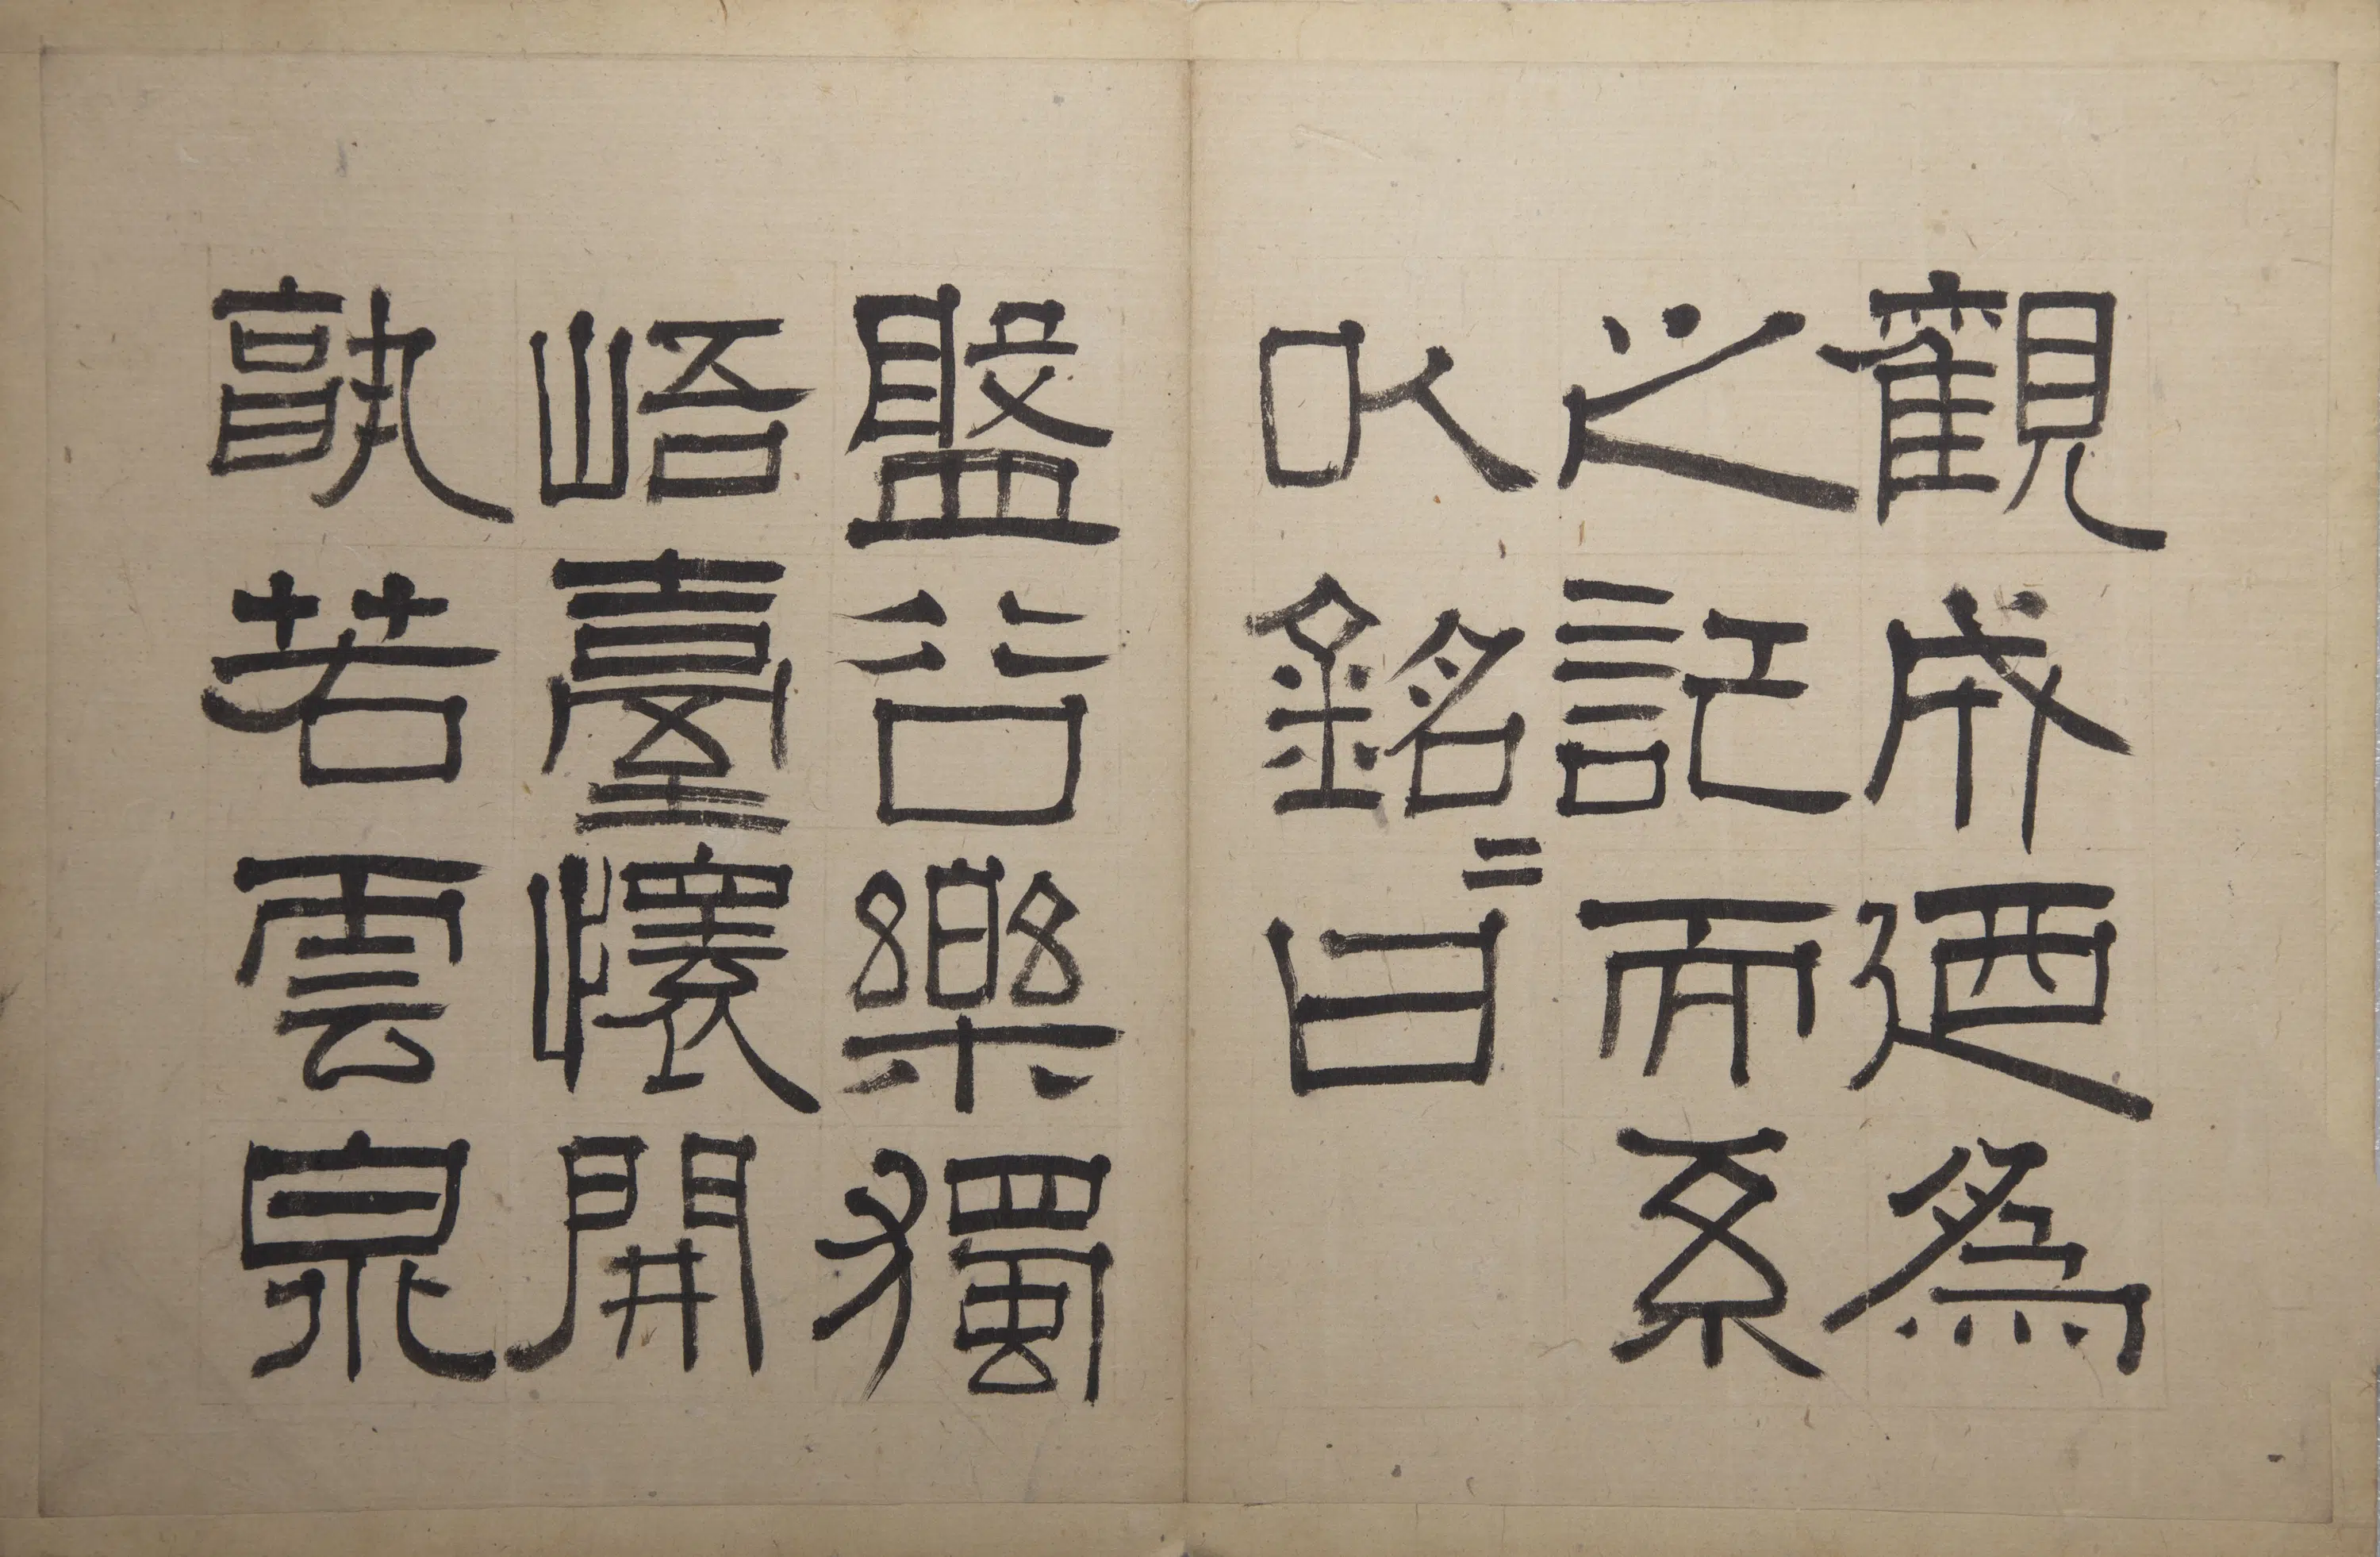 觀成迺為
之記而系
以銘〻曰
盤谷樂獨
峿臺懷開
孰若雲泉